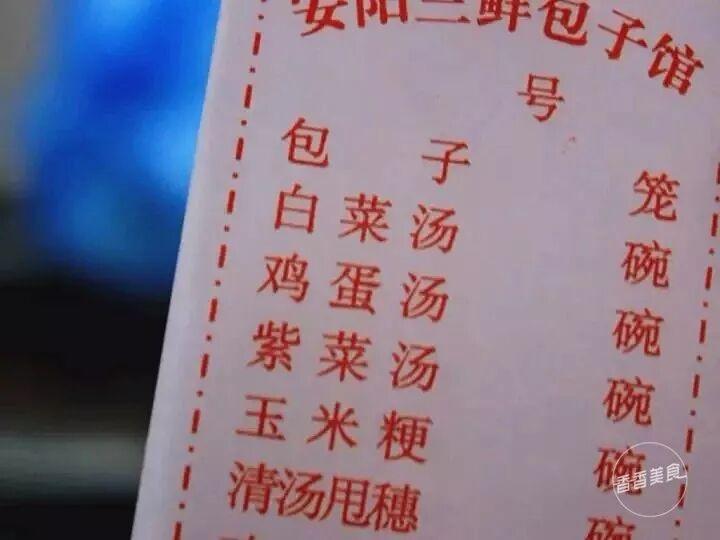 安阳三鲜包子馆
号
包 子 笼
白菜汤 碗
鸡蛋汤 碗
紫菜汤 碗
玉米粳 碗
清汤甩穗 碗
香香美食